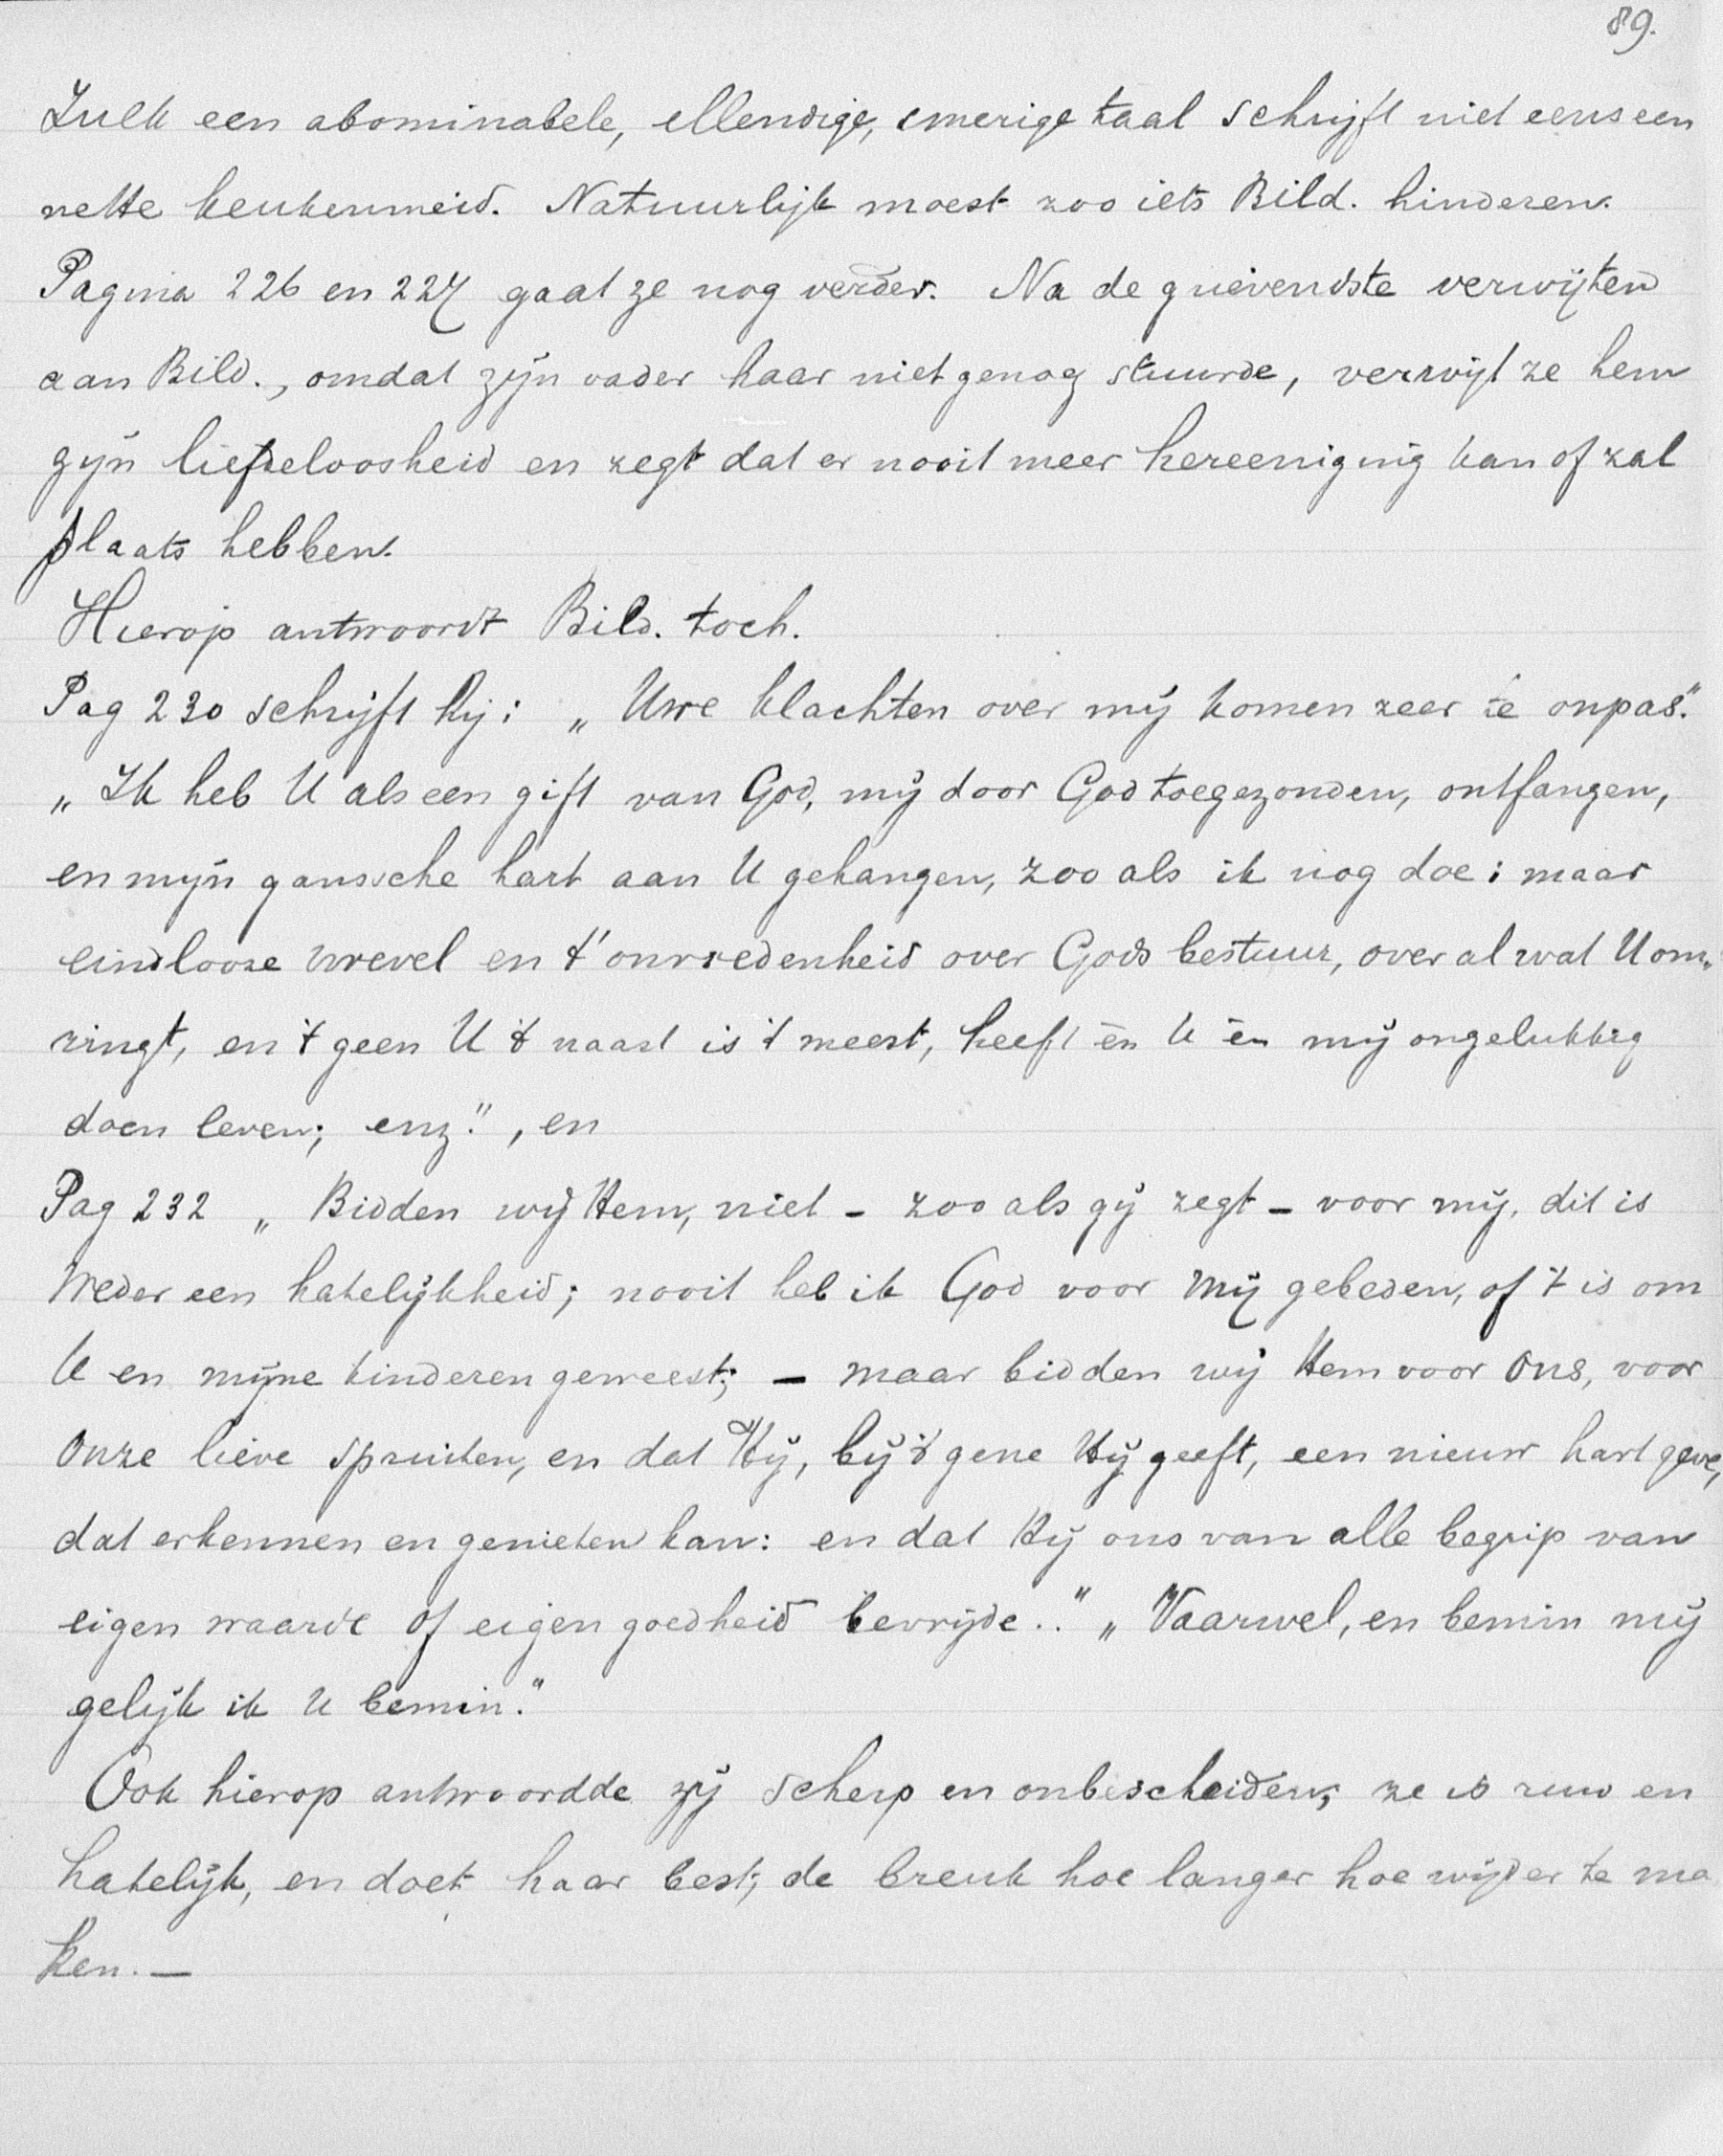 89.
Zulk een abominabele, ellendige, smerige taal schrijft niet eens een
nette keukenmeid. Natuurlijk moest zoo iets Bild. hinderen.
Pagina 226 en 227 gaat ze nog verder. Na de grievendste verwijten
aan Bild., omdat zijn vader haar niet genoeg stuurde, verwijt ze hem
zijn liefdeloosheid en zegt dat er nooit meer hereeniging kan of zal
plaats hebben.
Hierop antwoordt Bild. toch.
Pag 230 schrijft hij: „Uwe klachten over mij komen zeer te onpas."
„Ik heb U als een gift van God, mij door God toegezonden, ontfangen,
en mijn gansche hart aan U gehangen, zoo als ik nog doe: maar
eindlooze wrevel en t'onvredenheid over Gods bestuur, over al wat U om„
ringt, en 't geen U 't naast is 't meest, heeft èn U èn mij ongelukkig
doen leven; enz.", en
Pag 232 „Bidden wij Hem, niet – zoo als gij zegt – voor mij, dit is
weder een hatelijkheid; nooit heb ik God voor mij gebeden, of 't is om
U en mijne kinderen geweest; – maar bidden wij Hem voor ons, voor
onze lieve spruiten, en dat Hij, bij 't gene Hij geeft, een nieuw hart geve,
dat erkennen en genieten kan: en dat Hij ons van alle begrip van
eigen waarde of eigen goedheid bevrijde.." „Vaarwel, en bemin mij
gelijk ik U bemin."
Ook hierop antwoordde zij scherp en onbescheiden; ze is ruw en
hatelijk, en doet haar best, de breuk hoe langer hoe wijder te ma
ken. —